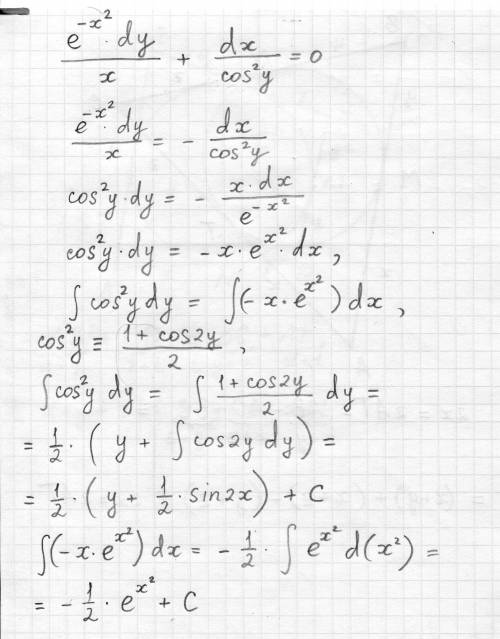 e^{-x^2} · dy / x + dx / cos²y = 0
e^{-x^2} · dy / x = - dx / cos²y
cos²y · dy = - x · dx / e^{-x^2}
cos²y · dy = - x · e^{x^2} · dx ,
∫ cos²y dy = ∫(- x · e^{x^2}) dx ,
cos²y ≡ 1 + cos2y / 2 ,
∫ cos²y dy = ∫ 1 + cos2y / 2 dy =
= 1/2 · ( y + ∫ cos2y dy ) =
= 1/2 · ( y + 1/2 · sin2x ) + C
∫(- x · e^{x^2}) dx = - 1/2 · ∫ e^{x^2} d(x²) =
= - 1/2 · e^{x^2} + C